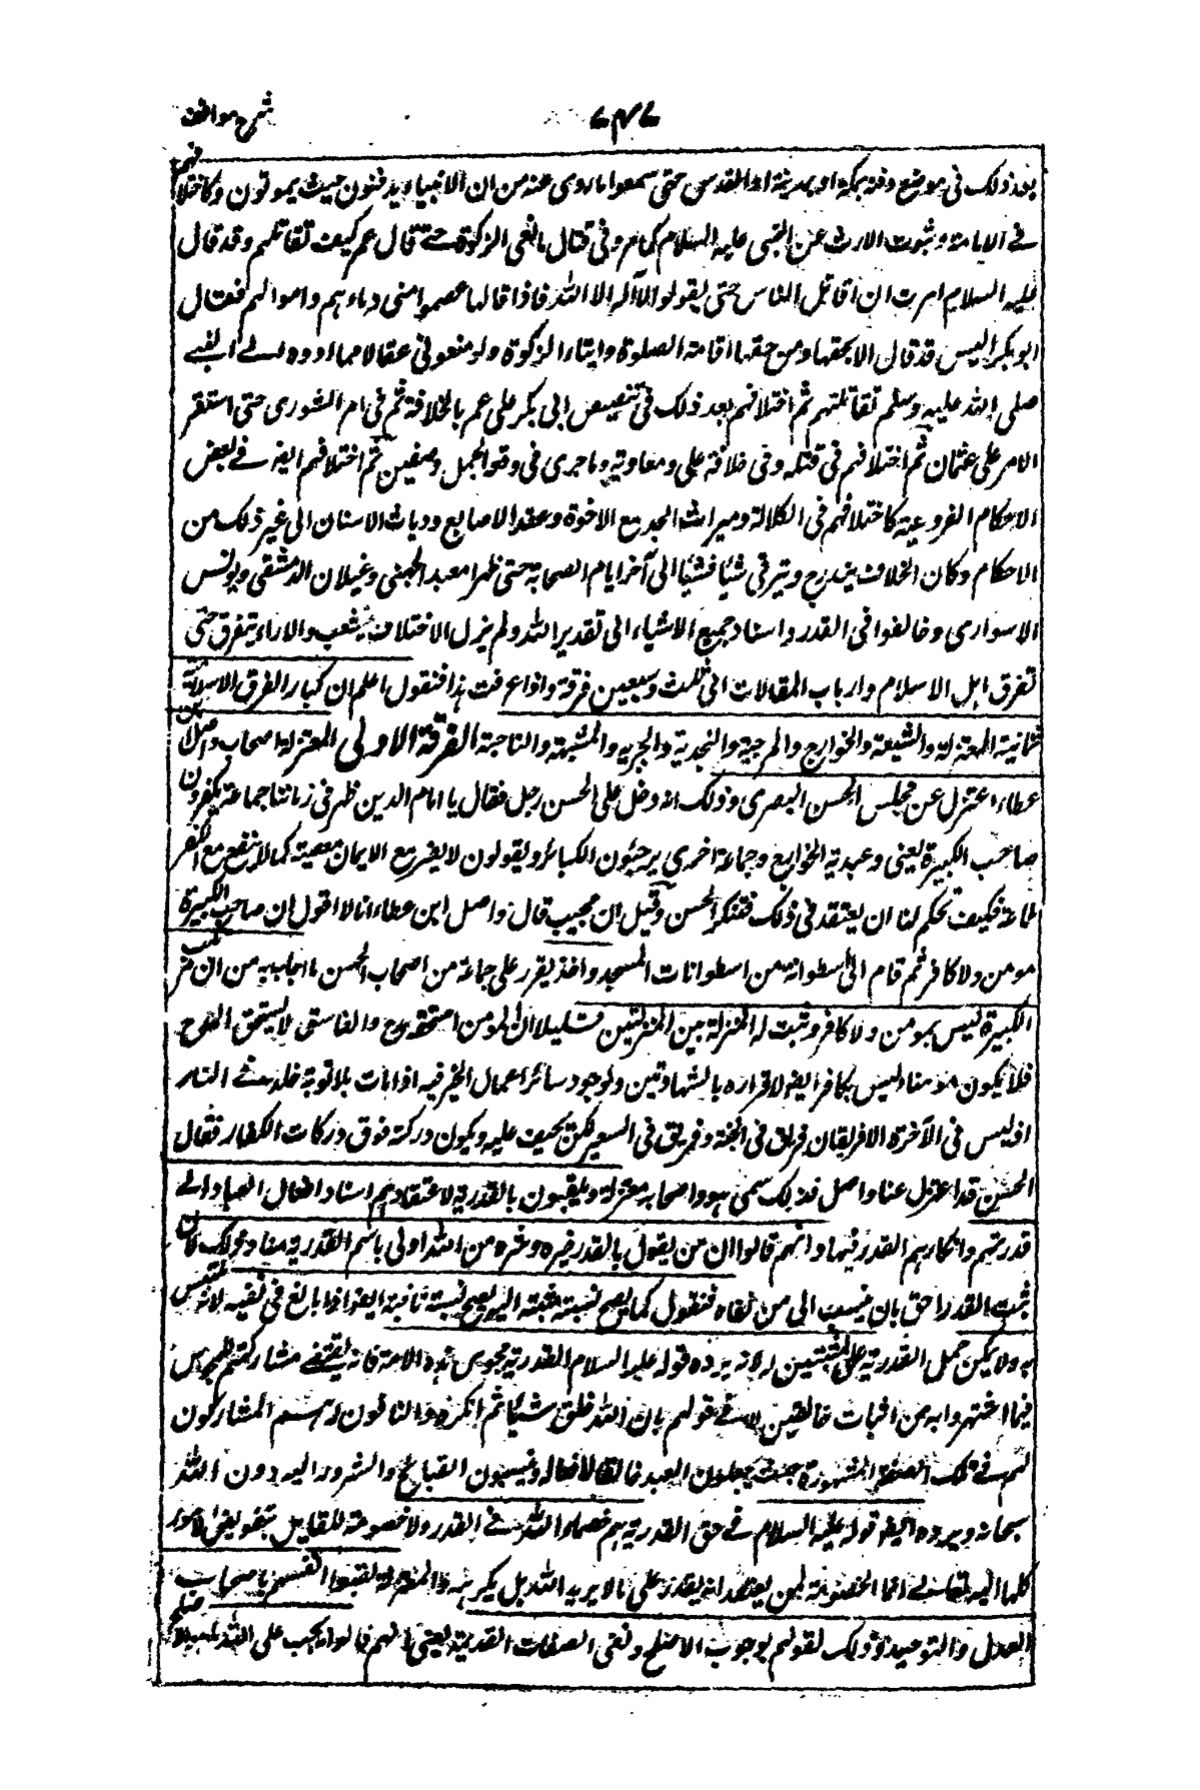 شرح مواقف
۷۴۷
بعد ذلك فى موضع دفنه بمكة او بمدينة او المقدس حتى سمعوا ما روى عنه من ان الانبياء يدفنون حيث يموتون وكاختلافهم
فى الامامة وثبوت الارث عن النبى عليه السلام كما مر وفى قتال مانعى الزكوة حتى قال عمر كيف تقاتلهم وقد قال
عليه السلام امرت ان اقاتل الناس حتى يقولوا لا اله الا الله فاذا قالها عصموا منى دماءهم واموالهم فقال
ابو بكر اليس قد قال الا بحقها ومن حقها اقامة الصلوة وايتاء الزكوة ولو منعونى عقالا مما ادوه الى النبى
صلى الله عليه وسلم لقاتلتهم ثم اختلافهم بعد ذلك فى تنصيص ابى بكر على عمر بالخلافة ثم فى امر الشورى حتى استقر
الامر على عثمان ثم اختلافهم فى قتله وفى خلافة على ومعاوية وما جرى فى وقعة الجمل وصفين ثم اختلافهم ايضا فى بعض
الاحكام الفروعية كاختلافهم فى الكلالة وميراث الجد مع الاخوة وعقد الاصابع وديات الاسنان الى غير ذلك من
الاحكام وكان الخلاف يتدرج ويترقى شيئا فشيئا الى آخر ايام الصحابة حتى ظهر معبد الجهنى وغيلان الدمشقى ويونس
الاسوارى وخالفوا فى القدر واسناد جميع الاشياء الى تقدير الله ولم يزل الاختلاف يتشعب والاراء يتفرق حتى
تفرق اهل الاسلام وارباب المقالات الى ثلث وسبعين فرقة واذا عرفت هذا فنقول اعلم ان كبار الفرق الاسلامية
ثمانية المعتزلة والشيعة والخوارج والمرجية والنجارية والجبرية والمشبهة والناجية الفرقة الاولى المعتزلة اصحاب واصل بن
عطاء اعتزل عن مجلس الحسن البصرى وذلك انه دخل على الحسن رجل فقال يا امام الدين ظهر فى زماننا جماعة يكفرون
صاحب الكبيرة يعنى وعيدية الخوارج وجماعة اخرى يرجئون الكبائر ويقولون لا يضر مع الايمان معصية كما لا ينفع مع الكفر
طاعة فكيف تحكم لنا ان يعتقد فى ذلك فتفكر الحسن وقبل ان يجيب قال واصل ابن عطاء انا لا اقول ان صاحب الكبيرة
مومن ولا كافر ثم قام الى اسطوانة من اسطوانات المسجد واخذ يقرر على جماعة من اصحاب الحسن ما اجاب به من ان مرتكب
الكبيرة ليس بمومن ولا كافر ويثبت له المنزلة بين المنزلتين قائلا ان المؤمن استحق مدح والفاسق لا يستحق المدح
فلا يكون مومنا وليس بكافر ايضا لاقراره بالشهادتين ولوجود سائر اعمال الخير فيه اذا مات بلا توبة خلد فى النار
اذ ليس فى الآخرة الا فريقان فريق فى الجنة وفريق فى السعير لكن يخفف عليه ويكون دركته فوق دركات الكفار فقال
الحسن قد اعتزل عنا واصل فلذلك سمى هو واصحابه معتزلة ويلقبون بالقدرية لاعتقادهم اسناد افعال العباد الى
قدرتهم وانكارهم القدر فيها وانهم قالوا ان من يقول بالقدر خيره وشره من الله اولى باسم القدرية منا وذلك لان
مثبت القدر احق بان ينسب اليه من نفاه فنقول كما يصح نسبة مثبته اليه يصح نسبة نافيه ايضا اذا بالغ فى نفيه لانه ملتبس
به ولا يمكن حمل القدرية على المثبتين له لانه يرده قوله عليه السلام القدرية مجوس هذه الامة فانه يقتضى مشاركتهم للمجوس
فيما اشتهروا به من اثبات خالقين لا فى قولهم بان الله خلق شيئا ثم انكره والنافون له هم المشاركون
لهم فى تلك الصفة المشهورة حيث يجعلون العبد خالقا لافعاله وينسبون القبائح والشرور اليه دون الله
سبحانه ويرده ايضا قوله عليه السلام فى حق القدرية هم خصماء الله فى القدر ولا خصومة للقايل بتفويض الامور
كلها اليه تعالى انما الخصومة لمن يعتقد انه يقدر على ما لا يريد الله بل يكرهه والمعتزلة لقبوا انفسهم باصحاب
العدل والتوحيد وذلك لقولهم بوجوب الاصلح ونفى الصفات القديمة يعنى انهم قالوا يجب على الله